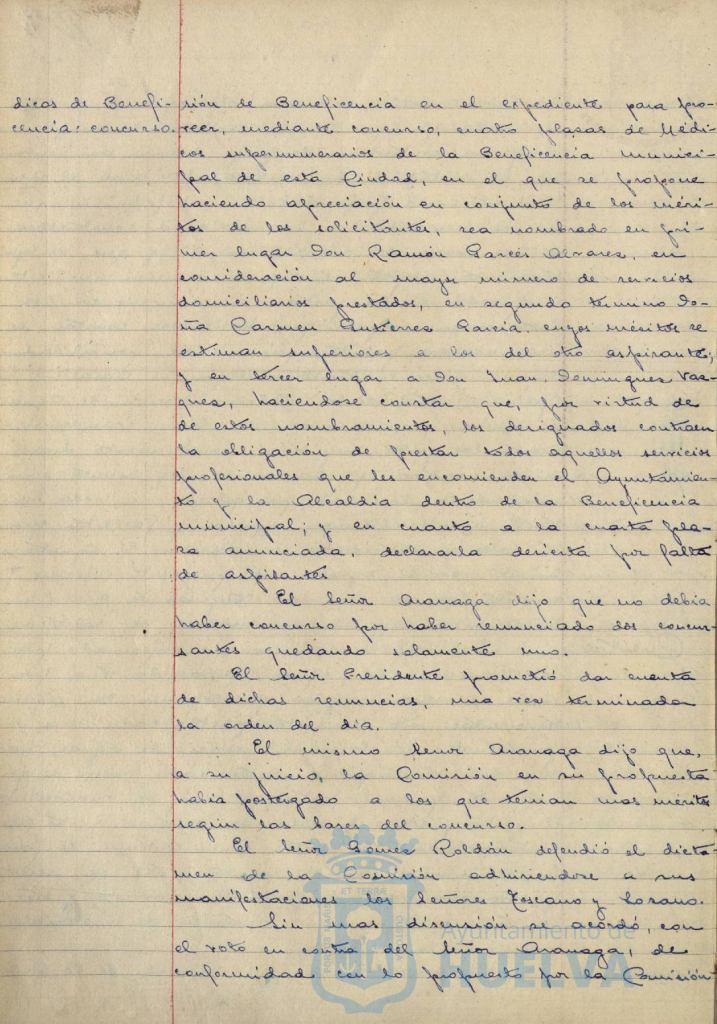 dicos de Benefi-
cencia: concurso.
sión de Beneficencia en el expediente para pro-
veer, mediante concurso, cuatro plazas de Médi-
cos supernumerarios de la Beneficencia munici-
pal de esta Ciudad, en el que se propone
haciendo apreciación en conjunto de los méri-
tos de los solicitantes, sea nombrado en pri-
mer lugar Don Ramón Garcés Alvarez, en
consideración al mayor número de servicios
domiciliarios prestados, en segundo termino Do-
ña Carmen Gutierrez Garcia, cuyos méritos se
estiman superiores a los del otro aspirante;
y en tercer lugar a Don Juan Dominguez Vaz-
quez, haciendose constar que, por virtud de
de estos nombramientos, los designados contraen
la obligación de prestar todos aquellos servicios
profesionales que les encomienden el Ayuntamien-
to y la Alcaldia dentro de la Beneficencia
municipal; y en cuanto a la cuarta pla-
za anunciada, declararla desierta por falta
de aspirantes
El Señor Aranaga dijo que no debia
haber concurso por haber renunciado dos concur-
santes quedando solamente uno.
El Señor Presidente prometió dar cuenta
de dichas renuncias, una vez terminada
la orden del dia.
El mismo Señor Aranaga dijo que,
a su juicio, la Comisión en su propuesta
habia postergado a los que tenian mas méritos
según las bases del concurso.
El Señor Gomez Roldán defendió el dicta-
men de la Comisión adhiriendose a sus
manifestaciones los Señores Toscano y Lozano.
Sin mas discusión se acordó, con
el voto en contra del Señor Aranaga, de
conformidad con lo propuesto por la Comisión.
Ayuntamiento de
HUELVA